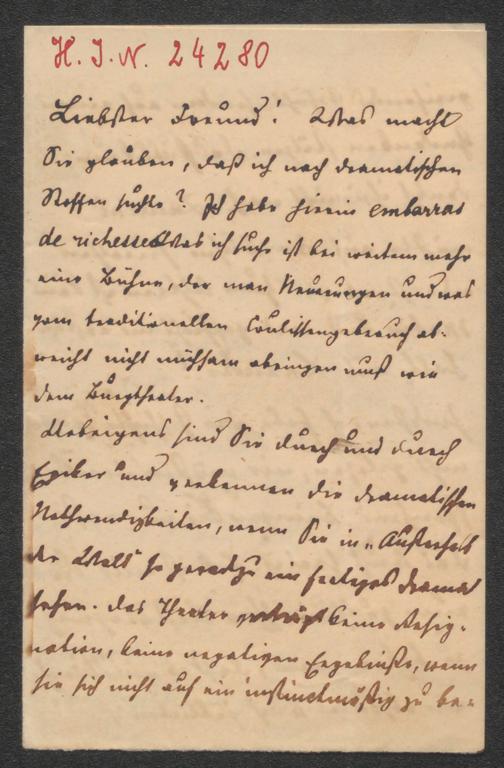 H. I. N. 24280
Liebster Freund! Was macht
Sie glauben, daß ich nach dramatischen
Stoffen suche? Ich habe hierin embarras
de richesse. Was ich suche ist bei weitem mehr
eine Bühne, der man Neuerungen und was
vom traditionellen Coulissengebrauch ab-
weicht nicht mühsam abringen muß wie
dem Burgtheater.
Uebrigens sind Sie durch und durch
Epiker und verkennen die dramatischen
Nothwendigkeiten, wenn Sie in „Außerhalb
der Welt" so geradezu ein fertiges Drama
sehen. Das Theater verträgt keine Resig-
nation, keine negativen Ergebnisse, wenn
sie sich nicht auf ein instinctmäßig zu be-